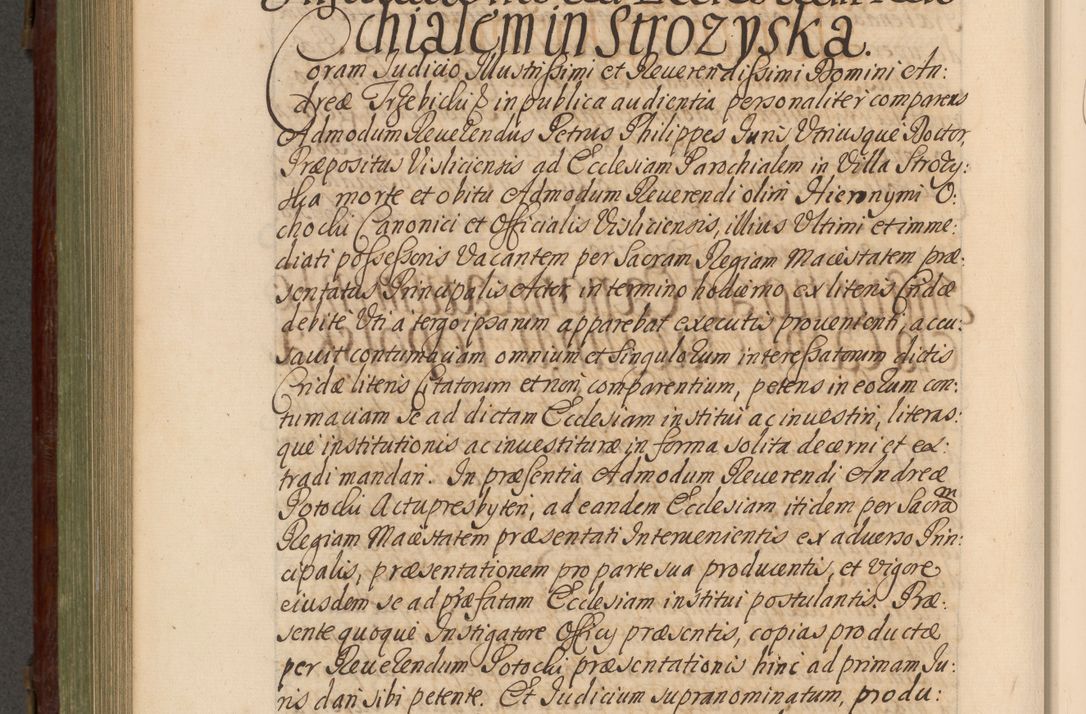 chialem in Strozyska.
Coram Iudicio Illustrissimi et Reverendissimi Domini An:
dreæ Trzebicki in publica audientia personaliter comparens
Admodum Reverendus Petrus Philippes Iuris Utriusque Doctor,
Præpositus Visliciensis ad Ecclesiam Parochialem in Villa Strozy:
ska morte et obitu Admodum Reverendi olim Hieronymi O:
chocki Canonici et Officialis Visliciensis, illius Ultimi et imme:
diati possessoris Vacantem per Sacram Regiam Maiestatem præ:
sentatus Principalis Actor, in termino hodierno ex literis Cridæ
debite Uti a tergo ipsarum apparebat executis provenienti, accu:
savit contumaciam omnium et singulorum interessatorum dictis
Cridæ literis Citatorum et non comparentium, petens in eorum con:
tumaciam se ad dictam Ecclesiam institui ac investiri, literas:
que institutionis ac investituræ in forma solita decerni et ex:
tradi mandari. In præsentia Admodum Reverendi Andreæ
Potocki Actupresbyteri, ad eandem Ecclesiam itidem per Sacram
Regiam Maiestatem præsentati Intervenientis ex adverso Prin:
cipalis, præsentationem pro parte sua producentis, et vigore
eiusdem se ad præfatam Ecclesiam institui postulantis. Præ:
sente quoque Instigatore Officij præsentis, copias productæ
per Reverendum Potocki præsentationis hinc ad primam Iu:
ris dari sibi petente. Et Iudicium supranominatum, produ: